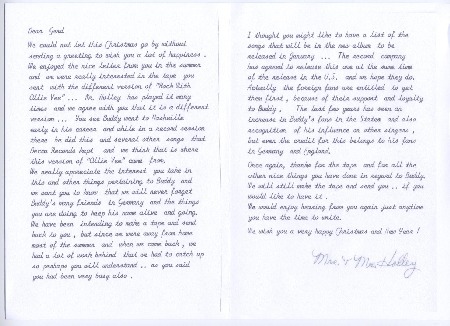 Dear Gerd
We could not let this Christmas go by without
sending a greeting to wish you a lot of happiness.
We enjoyed the nice letter from you in the summer
and we were really interested in the tape you
sent with the different version of "Rock With
Ollie Vee" ... Mr. Holley has played it many
times and we agree with you that it is a different
version ... You see Buddy went to Nashville
early in his career and while in a record session
there he did this and several other songs that
Decca Records kept and we think that is where
this version of "Ollie Vee" came from.
We really appreciate the interest you take in
this and other things pertaining to Buddy and
we want you to know that we will never forget
Buddy's many friends in Germany and the things
you are doing to keep his name alive and going.
We have been intending to make a tape and send
back to you, but since we were away from home
most of the summer and when we came back, we
had a lot of work behind that we had to catch up
so perhaps you will understand .. as you said
you had been very busy also.
I thought you might like to have a list of the
songs that will be in the new album to be
released in January ... The record company
has agreed to release this one at the same time
of the release in the U.S. and we hope they do.
Actually the foreign fans are entitled to get
them first, because of their support and loyalty
to Buddy. The last two years has seen an
increase in Buddy's fans in the States and also
recognition of his influence on other singers,
but even the credit for this belongs to his fans
in Germany and England.
Once again, thanks for the tape and for all the
other nice things you have done in regard to Buddy.
We will still make the tape and send you .. if you
would like to have it.
We would enjoy hearing from you again just anytime
you have the time to write.
We wish you a very happy Christmas and New Year!
Mr. & Mrs. Holley